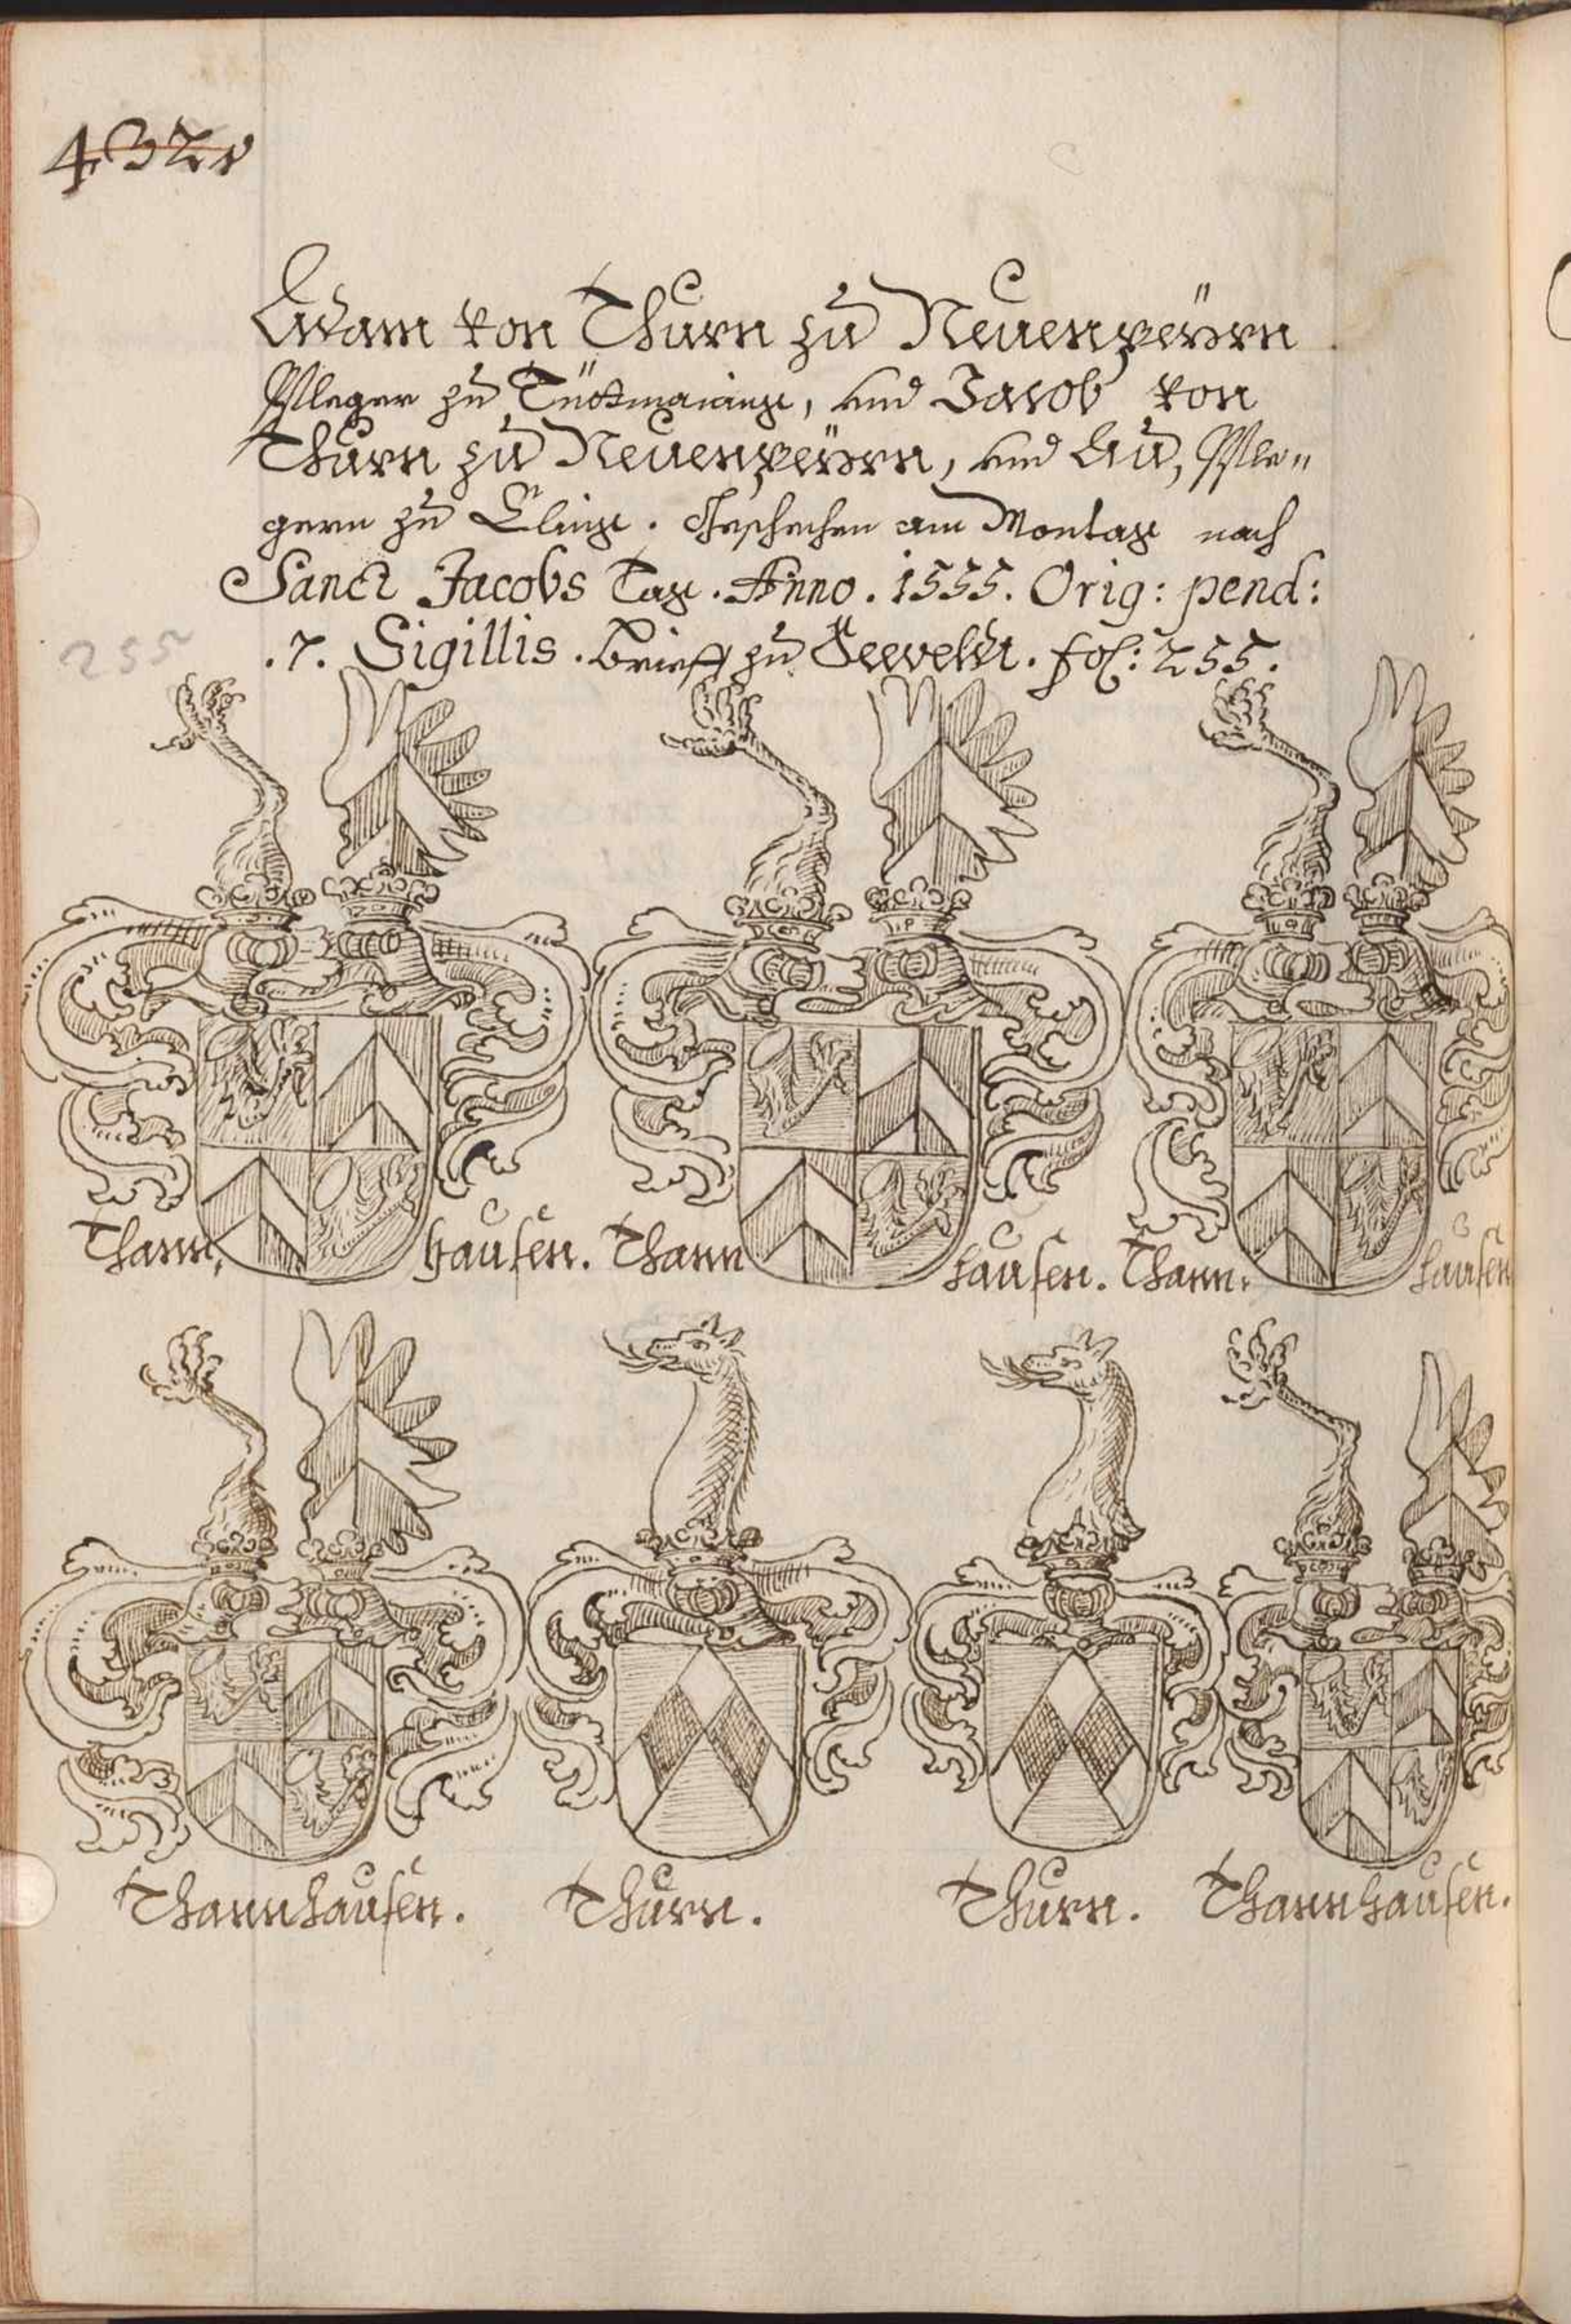 432v
Adam von Thurn zu Neuenpeÿrn
Pfleger zu Tütmaning, und Jacob von
Thurn zu Neuenpeÿrn, und Au, Pfle„
gern zu Cling. Geschehen am Montag nach
Sanct Jacobs Tag. Anno. 1555. Orig: pend:
.7. Sigillis. Brieff zu fol: 255.
255
Thann, hausen. Thann hausen. Thann. hausen
Thannhausen. Thurn. Thurn. Thannhausen.